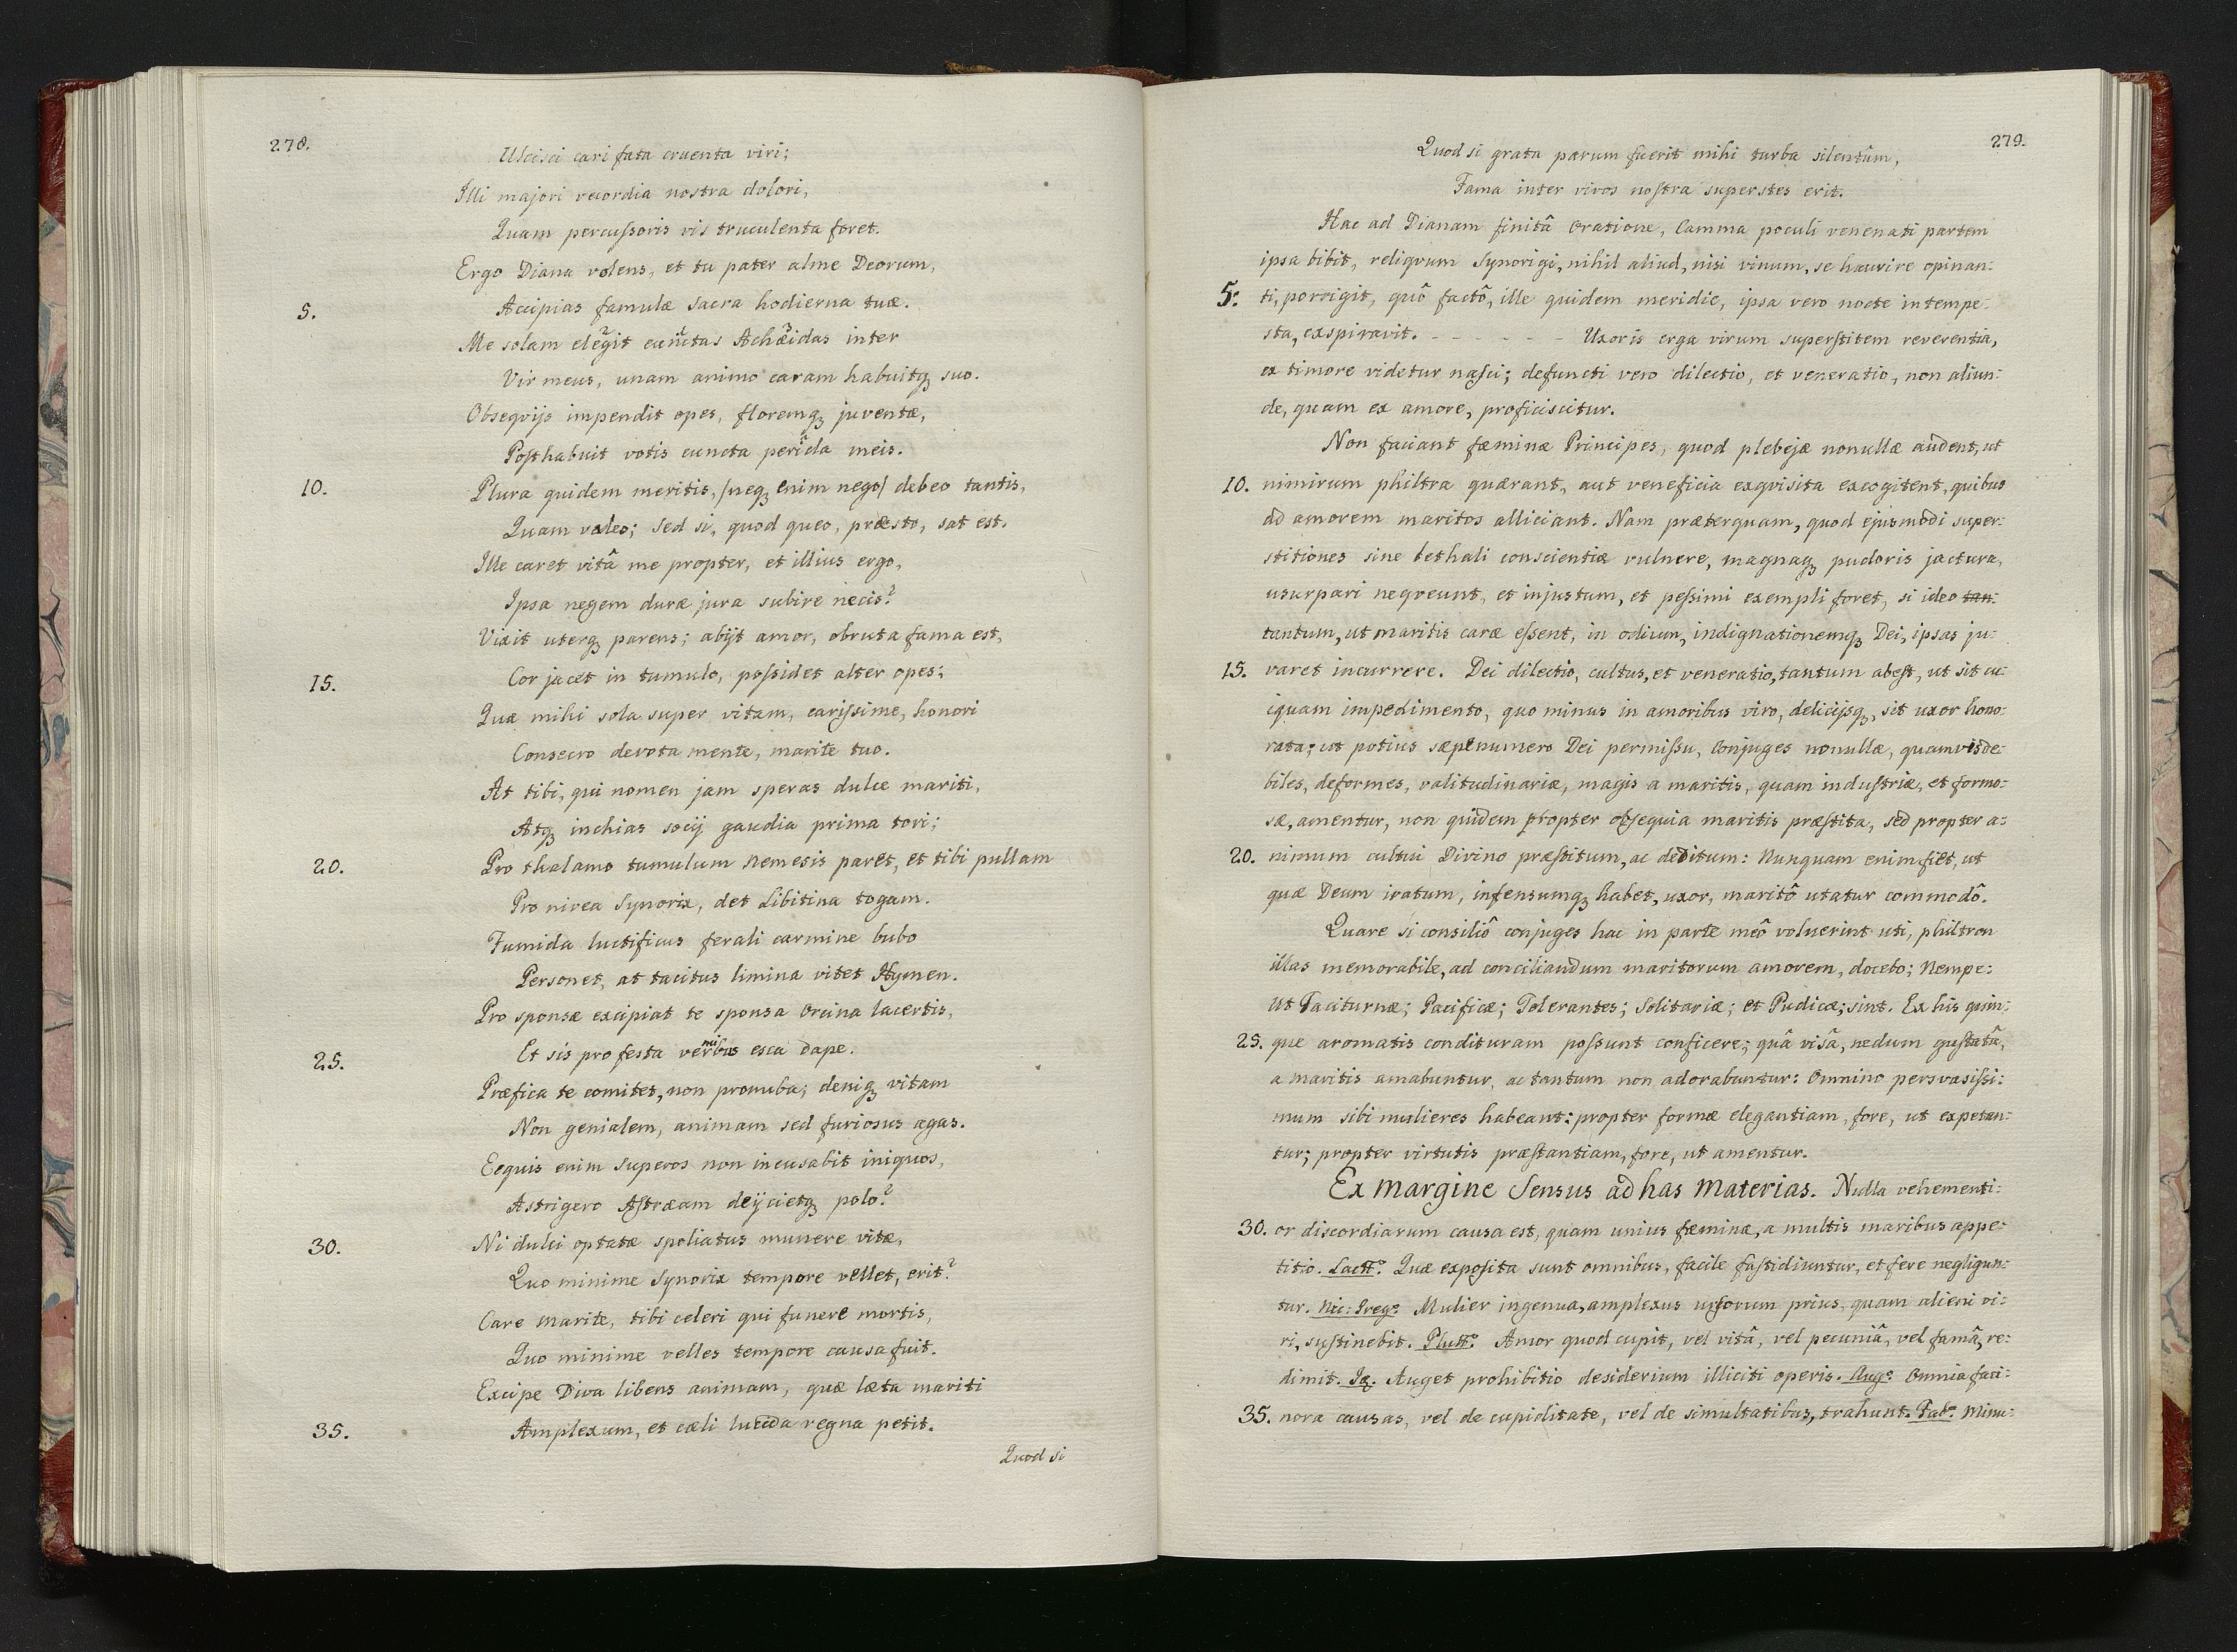 278.
Ulcisci cari fata cruenta viri;
Illi majori vecordia nostra dolori,
Quam percussoris vis truculenta foret.
Ergo Diana volens, et tu pater alme Deorum,
5. Accipias famulæ sacra hodierna tuæ.
Me solam elegit cunctas Achæidas inter
Vir meus, unam animo caram habuitq3 suo.
Obseqvijs impendit opes, floremq3 juventæ,
Posthabuit votis cuncta pericla meis.
10. Plura quidem meritis, /neq3 enim nego/ debeo tantis,
Quam valeo; sed si, quod queo, præsto, sat est.
Ille caret vitâ me propter, et illius ergo,
Ipsa negem duræ jura subire necis?
Vixit uterq3 parens; abijt amor, obruta fama est,
15. Cor jacet in tumulo, possidet alter opes:
Quæ mihi sola super vitam, carissime, honori
Consecro devota mente, marite tuo.
At tibi, qui nomen jam speras dulce mariti,
Atq3 inchias socij gaudia prima tori;
20. Pro thalamo tumulum Nemesis paret, et tibi pullam
Pro nivea Synorix, det Libitina togam.
Fumida luctificus ferali carmine bubo
Personet, at tacitus limina vitet Hymen.
Pro sponsæ excipiat te sponsa Orcina lacertis,
25. Et sis pro festa vermibus esca dape.
Præfica te comitet, non pronuba; deniq3 vitam
Non genialem, animam sed furiosus agas.
Ecquis enim superos non incusabit iniquos,
Astrigero Astræam deijcietq3 polo?
30. Ni dulci optatæ spoliatus munere vitæ,
Quo minime Synorix tempore vellet, erit?
Care marite, tibi celeri qui funere mortis,
Quo minime velles tempore causa fuit.
Excipe Diva libens animam, quæ læta mariti
35. Amplexum, et cæli lucida regna petit.
Quod si
279.
Quod si grata parum fuerit mihi turba silentûm,
Fama inter vivos nostra superstes erit.
Hac ad Dianam finitâ Oratione, Camma poculi venenati partem
ipsa bibit, reliqvum Synorigi, nihil aliud, nisi vinum, se haurire opinan:
5. ti, porrigit, quô factô, ille quidem meridie, ipsa vero nocte intempe:
sta, exspiravit. - - - - - - Uxoris erga virum superstitem reverentia,
ex timore videtur nasci; defuncti vero dilectio, et veneratio, non aliun:
de, quam ex amore, proficiscitur.
Non faciant fæminæ Principes, quod plebejæ nonullæ audent, ut
10. nimirum philtra quærant, aut veneficia exqvisita excogitent, quibus
ad amorem maritos alliciant. Nam præterquam, quod ejusmodi super:
stitiones sine lethali conscientiæ vulnere, magnaq3 pudoris jactura,
usurpari neqveunt, et injustum, et pessimi exempli foret, si ideo tan:
tantum, ut maritis caræ essent, in odium, indignationemq3 Dei, ipsas ju:
15. varet incurrere. Dei dilectio, cultus, et veneratio, tantum abest, ut sit cu:
iquam impedimento, quo minus in amoribus viro, delicijsq3, sit uxor hono:
rata; ut potius sæpenumero Dei permissu, Conjuges nonullæ, quamvis de:
biles, deformes, valitudinariæ, magis a maritis, quam industriæ, et formo:
sæ, amentur, non quidem propter obsequia maritis præstita, sed propter a:
20. nimum cultui Divino præstitum, ac deditum: Nunquam enim fiet, ut
quæ Deum iratum, infensumq3 habet, uxor, maritô utatur commodô.
Quare si consiliô conjuges hac in parte meô voluerint uti, philtron
illas memorabile, ad conciliandum maritorum amorem, docebo; Nempe:
Ut Taciturnæ; Pacificæ; Tolerantes; Solitariæ; et Pudicæ; sint. Ex his quin:
25. que aromatis condituram possunt conficere; quâ visâ, nedum gustatâ,
a maritis amabuntur, ac tantum non adorabuntur: Omnino persvasissi:
mum sibi mulieres habeant: propter formæ elegantiam, fore, ut expetan:
tur; propter virtutis præstantiam, fore, ut amentur.
Ex Margine Sensus ad has Materias. Nulla vehementi:
30. or discordiarum causa est, quam unius fæminæ, a multis maribus appe:
titio. Lactt: Quæ exposita sunt omnibus, facile fastidiuntur, et fere negligun:
tur. Nic: Greg: Mulier ingenua, amplexus ursorum prius, quam alieni vi:
ri, sustinebit. Plutt: Amor quod cupit, vel vitâ, vel pecuniâ, vel famâ, re:
dimit. Auget prohibitio desiderium illiciti operis. Aug: Omnia faci:
35. nora causas, vel de cupiditate, vel de simultatibus, trahunt. Fab: Minu: